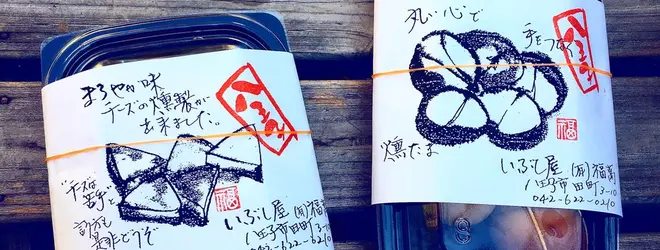 まろやか味
チーズの燻製が
出来ました。
"チーズは
苦手"と
訪方も
是非どうぞ
いぶし屋 (有)福
八王子市田町3-10
042-622-0210
福
丸い心で
手をつなぐ
燻たま
福
いぶし屋 (有)福
八王子市田町3-10
042-622-0210